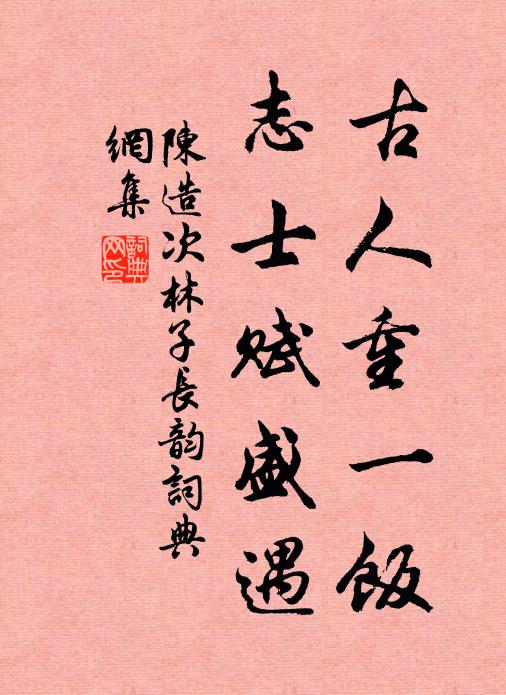 古人重一飯
志士賦盛遇
陳造次林子長韵詞典
網集
詞典
网印